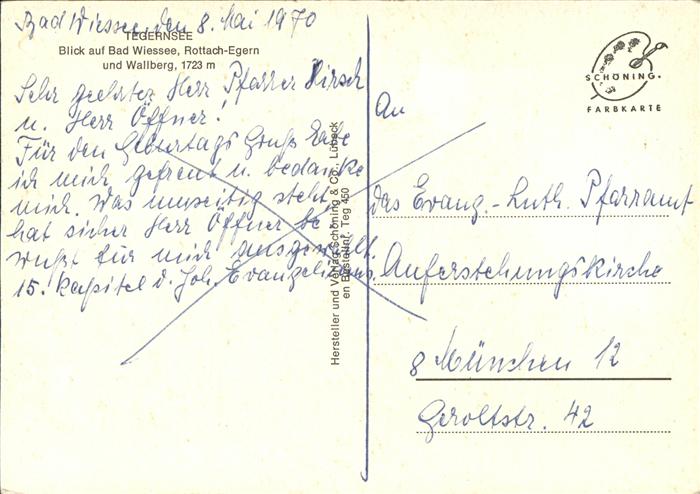 Bad Wiessee, den 8. Mai 1970
TEGERNSEE
Blick auf Bad Wiessee, Rottach-Egern
und Wallberg, 1723 m
Sehr geehrter Herr Pfarrer Hirsch
u. Herr Öffner!
Für den Geburtags Gruß habe
ich mich gefreut u. bedanke
mich. Was umseitig steht,
hat sicher Herr Öffner be
wußt für mich ausgewählt.
15. Kapitel d. Joh. Evangeliums.
Hersteller und Verlag Schöning & Co., Lübeck
en Bestellnr. Teg 450
SCHÖNING.
FARBKARTE
An
das Evang.-Luth. Pfarramt
Auferstehungskirche
8 München 12
Geroltstr. 42